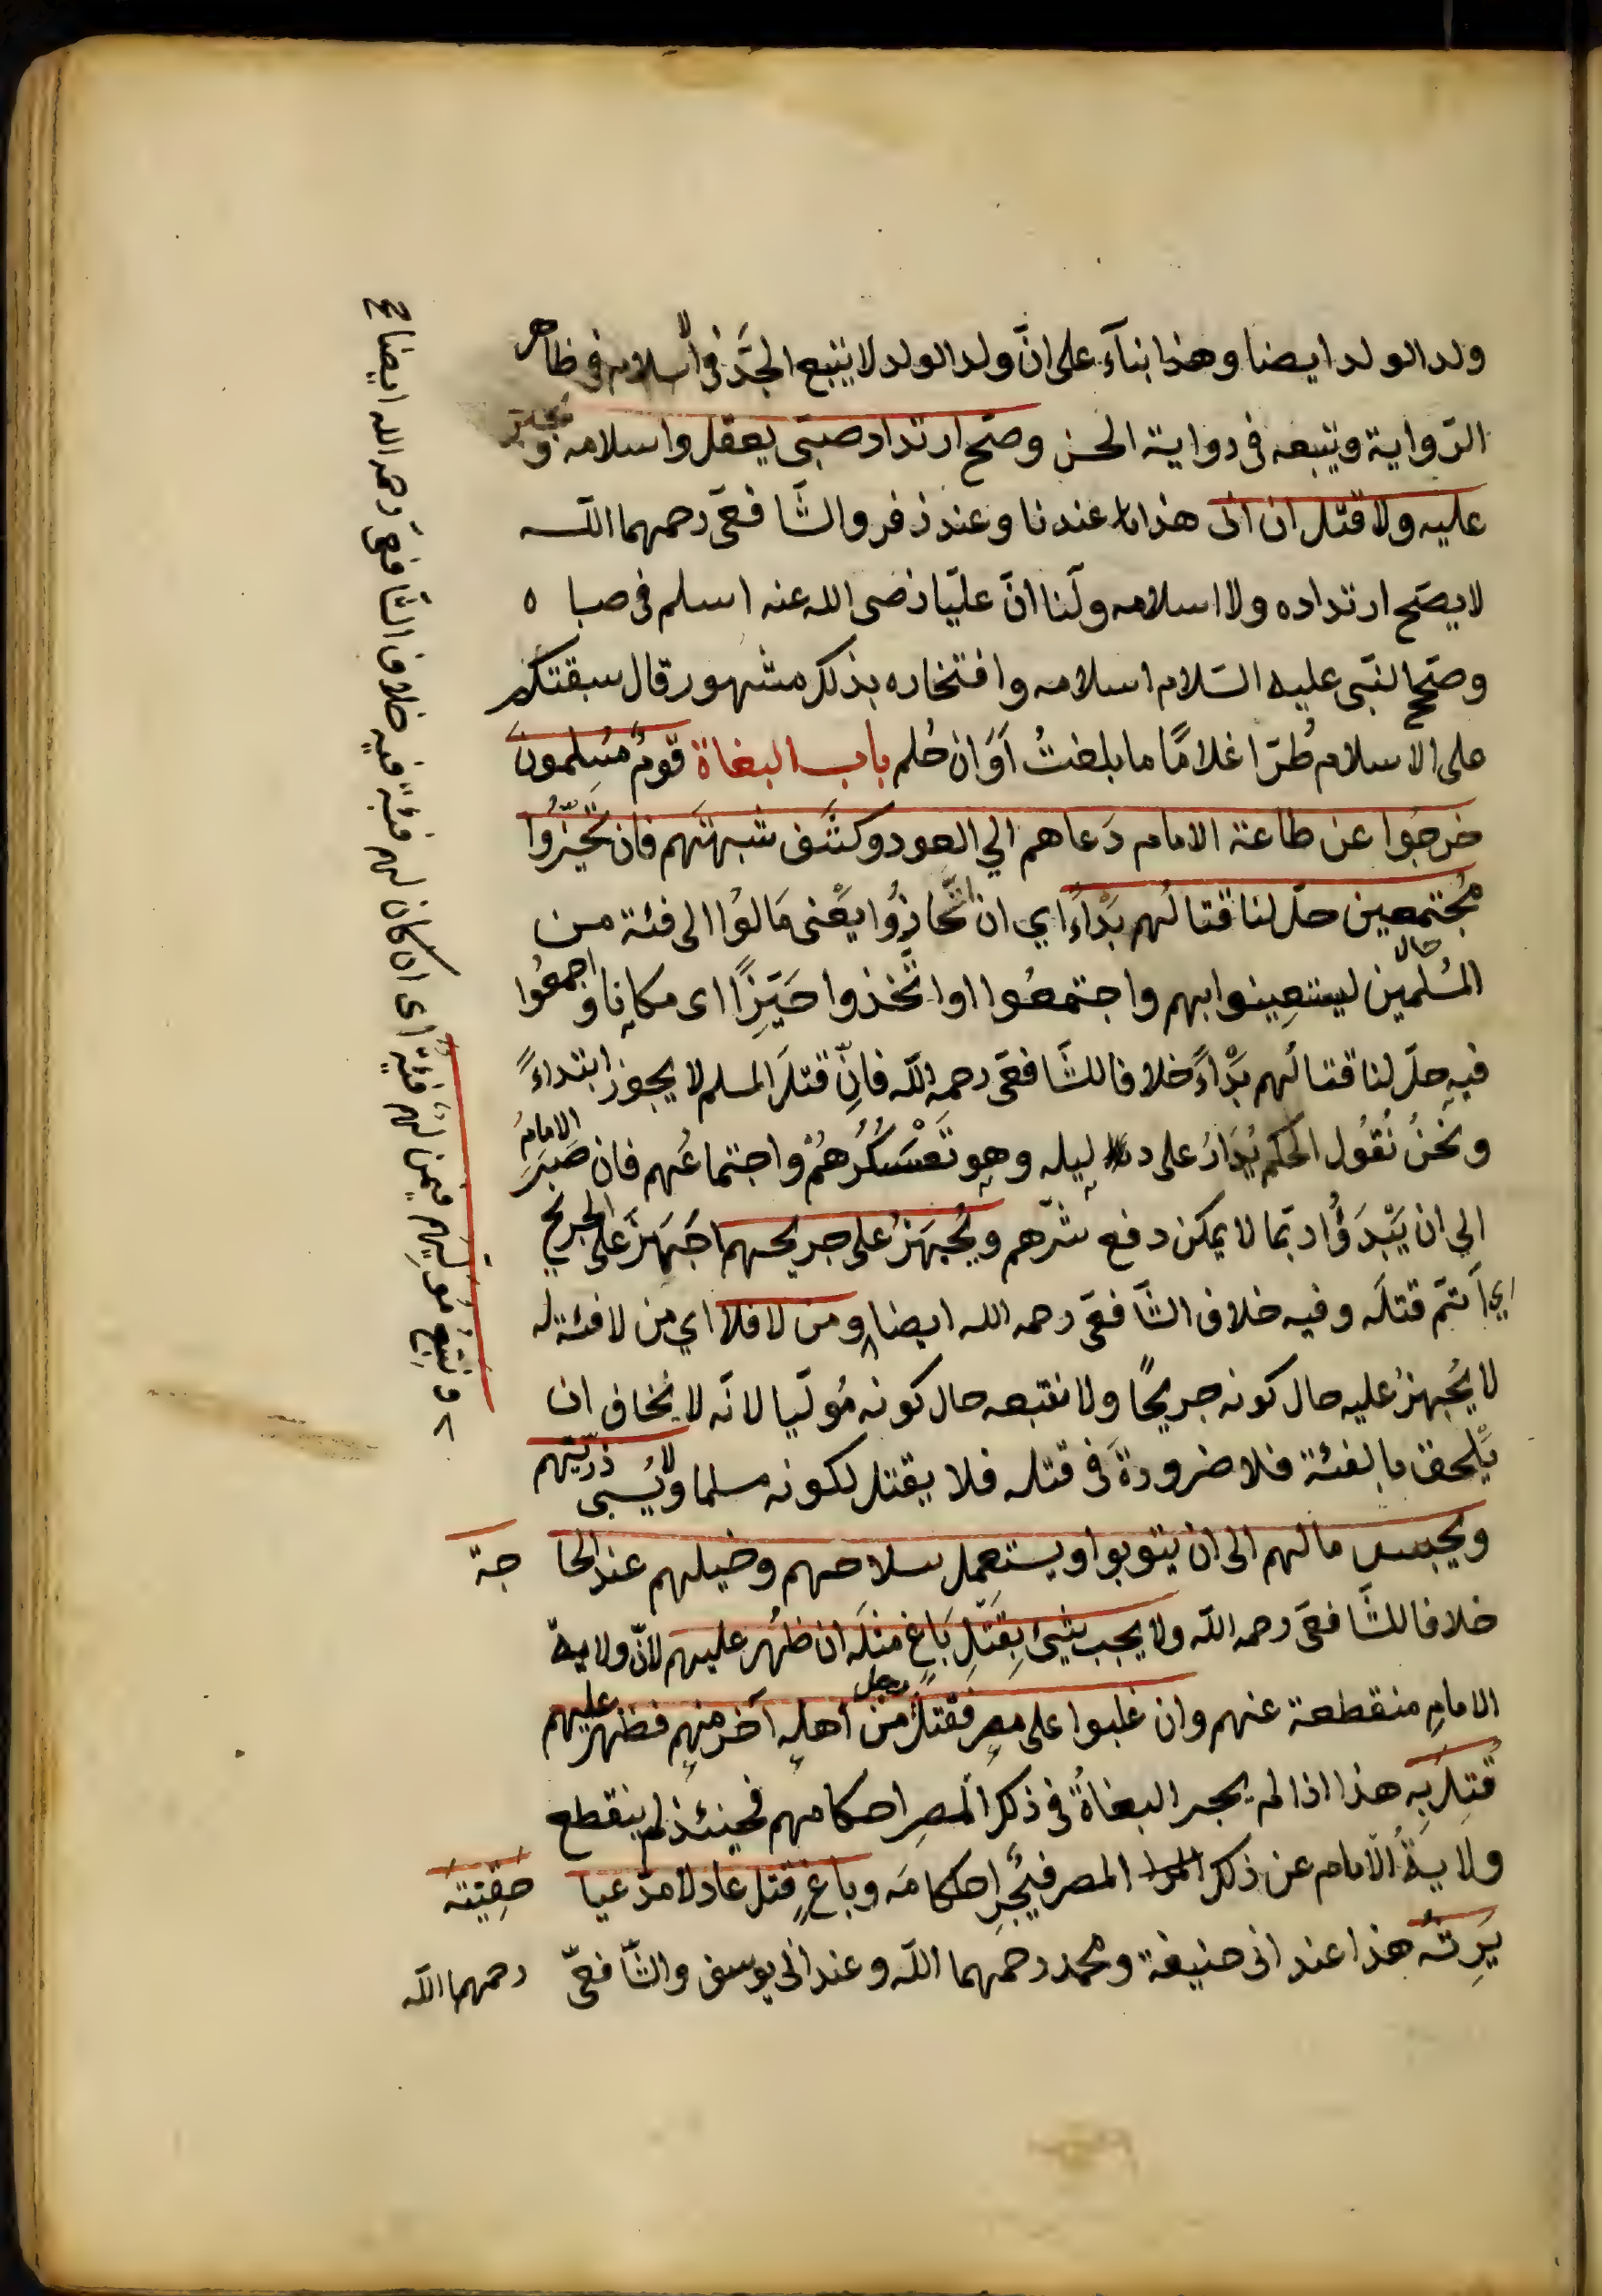 ولد الولد ايضا وهذا بناءً على انّ ولد الولد لا يتبع الجدّ فى الاسلام فى ظاهر
الرّواية ويتبعه فى رواية الحسن وصحّ ارتداد صبىّ يعقل واسلامه ويجبر
عليه ولا قتل ان ابى هذا عندنا وعند زفر والشّافعىّ رحمهما اللّه
لا يصحّ ارتداده ولا اسلامه ولنا انّ عليّا رضى الله عنه اسلم فى صباه
وصحّح النّبى عليه السّلام اسلامه وافتخاره بذلك مشهور قال سبقتكم
على الاسلام طُرّا غلامًا ما بلغتُ اَوَان حُلم باب البغاة قومٌ مُسلمون
خرجُوا عن طاعة الامام دَعاهم الي العود وكشَف شبهتَهم فان تحيّزُوا
مُجتمعين حلّ لنا قتالُهم بَدْاءً اي ان انحازُوا يَعْنى مَالوُا الى فئة من
المُسْلمين حالا ليستعِينوا بهم واجتمعُوا او اتّخذوا حَيّزًا اى مكانا واجمعُوا
فيه حلّ لنا قتالُهم بَدْاءً خلافا للشّافعىّ رحمه اللّه فانّ قتلَ المسلم لا يجوز ابتداءً
ونحنُ نُقوُل الحكم يُدَارُ على دليله وهو تَعَسْكُرُهُمْ واجتماعُهم فان صَبَرَ الامامُ
الي ان يَبْدَؤُا ربّما لا يمكن دفع شرّهم ويُجْهَزُ على جريحهم اَجْهَزَ على الجريح
اي اَتمّ قتلَه وفيه خلاف الشّافعىّ رحمه الله ايضا ومن لا فلا اي من لا فئة له
لا يُجْهزُ عليه حال كونه جريحًا ولا نتّبعه حال كونه مُولّيا لانّه لا يُخاف ان
يَلحق بالفئة فلا ضرورةَ فى قتله فلا يقتل لكونه مسلما ولا يُسْبى ذرّيّتهم
ويحبس مالهم الى ان يتوبوا ويستعمل سلاحهم وخيلهم عند الحاجة
خلافا للشّافعىّ رحمه اللّه ولا يجب شئ بِقَتْلِ بَاغٍ مثلَه ان ظُهر عليهم لانّ ولاية
الامام منقطعة عنهم وان غلبوا على مصر فقتل رجل من اهله آخر منهم فظهر عليهم
قُتِلَ بِه هذا اذا لم يجر البغاةُ فى ذلك المصرِ احكامهم فحينئذ لم ينقطع
ولايةُ الامام عن ذلك المصر فيُجرِ احكامَه وباغٍ قتل عادلا مدّعيا حقيّتَه
يَرِثُه هذا عند ابى حنيفة ومحمد رحمهما اللّه وعند ابى يوسف والشّافعىّ رحمهما اللّه
ونتّبع مُوَلّيهم فيمن لهم فئة اى ان كان لهم فئة فيه خلاف الشّافعىّ رحمه الله ايضا صح